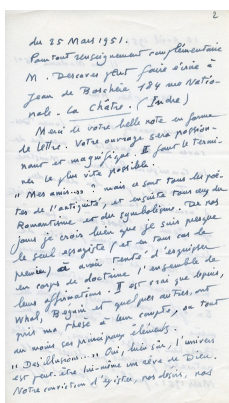 2
du 25 Mars 1951.
Pour tout renseignement complémentaire
M. Descaves peut faire écrire à
Jean de Boschère 184 rue Natio-
nale. La Châtre. (Indre)
Merci de votre belle note en forme
de lettre. Votre ouvrage sera passion-
nant et magnifique. Il faut le termi-
ner le plus vite possible.
"Mes amis...." ? mais ce sont tous les poè-
tes de l'antiquité, et ensuite tous ceux du
Romantisme et du symbolisme. De nos
jours je crois bien que je suis presque
le seul essayiste (et en tous cas le
premier) à avoir tenté d'esquisser
en corps de doctrine l'ensemble de
leurs affirmations. Il est vrai que depuis,
Whal, Béguin et quelques autres, ont
pris ma thèse à leur compte, ou tout
au moins ses principaux éléments.
"Des illusions..." Oui, bien sûr, l'univers
est peut-être lui-même un rêve de Dieu.
Notre conviction d'exister, nos désirs, nos